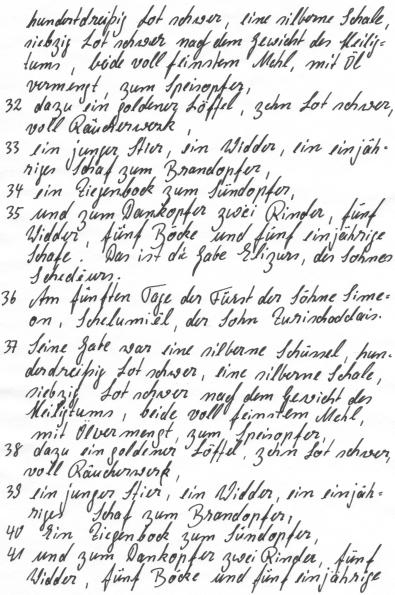 hundertdreißig Lot schwer, eine silberne Schale,
siebzig Lot schwer nach dem Gewicht des Heilig-
tums, beide voll feinstem Mehl, mit Öl
vermengt, zum Speisopfer,
32 dazu ein goldener Löffel, zehn Lot schwer,
voll Räucherwerk,
33 ein junger Stier, ein Widder, ein einjäh-
riges Schaf zum Brandopfer,
34 ein Ziegenbock zum Sündopfer,
35 und zum Dankopfer zwei Rinder, fünf
Widder, fünf Böcke und fünf einjährige
Schafe. Das ist die Gabe Elizurs, des Sohnes
Schedëurs.
36 Am fünften Tage der Fürst der Söhne Sime-
on, Schelumiël, der Sohn Zurischaddais.
37 Seine Gabe war eine silberne Schüssel, hun-
derdreißig Lot schwer, eine silberne Schale,
siebzig Lot schwer nach dem Gewicht des
Heiligtums, beide voll feinstem Mehl,
mit Öl vermengt, zum Speisopfer,
38 dazu ein goldener Löffel, zehn Lot schwer,
voll Räucherwerk,
39 ein junger Stier, ein Widder, ein einjäh-
riges Schaf zum Brandopfer,
40 Ein Ziegenbock zum Sündopfer,
41 und zum Dankopfer zwei Rinder, fünf
Widder, fünf Böcke und fünf einjährige